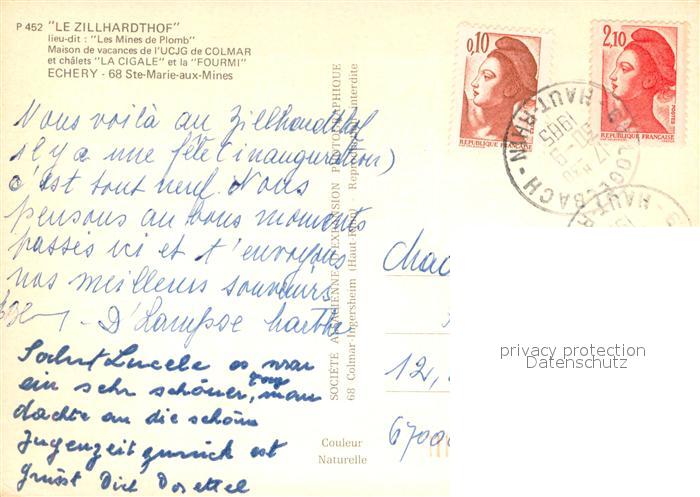 P 452 "LE ZILLHARDTHOF"
lieu-dit : "Les Mines de Plomb"
Maison de vacances de l'UCJG de COLMAR
et châlets "LA CIGALE" et la "FOURMI"
ECHERY - 68 Ste-Marie-aux-Mines
0,10
REPUBLIQUE FRANÇAISE
2,10
POSTES
REPUBLIQUE FRANÇAISE
HAUT-RHIN
1985
Nous voilà au Zillhardthof
il y a une fête (inauguration)
c'est tout neuf. Nous
pensons au bons moments
passés ici et t'envoyons
nos meilleurs souvenirs
Salut Lucele es war
ein sehr schöner Tag, man
dachte an die schöne
Jugenzeit zurück est
grüsst Dich
SOCIÉTÉ ALSACIENNE D'EXPANSION PHOTOGRAPHIQUE
68 Colmar-Ingersheim (Haut-Rhin) - Reproduction interdite
Couleur
Naturelle
12,
6700
privacy protection
Datenschutz